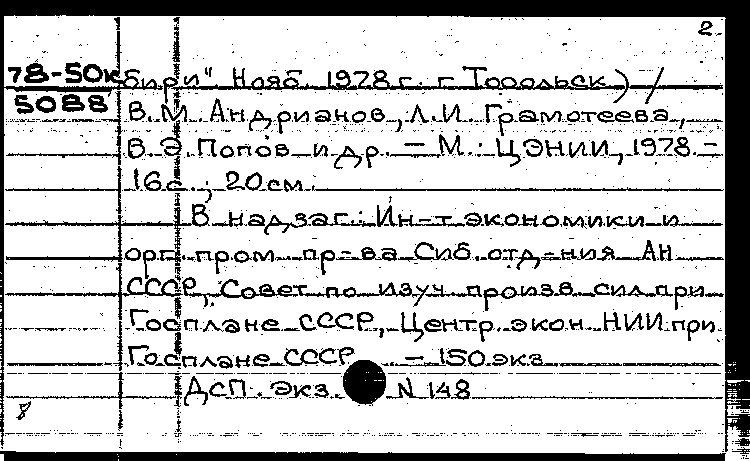 2
78-50к бири" Нояб. 1978 г. г. Тобольск) /
5088 В.М. Андрианов, Л.И. Грамотеева,
В.Э. Попов и др. – М.: ЦЭНИИ, 1978. –
16с.; 20см.
В надзаг.: Ин-т экономики и
орг. пром. пр-ва Сиб. отд-ния АН
СССР, Совет по изуч. произв. сил при
Госплане СССР, Центр. экон. НИИ при
Госплане СССР. – 150 экз.
ДСП. Экз. N 148
8